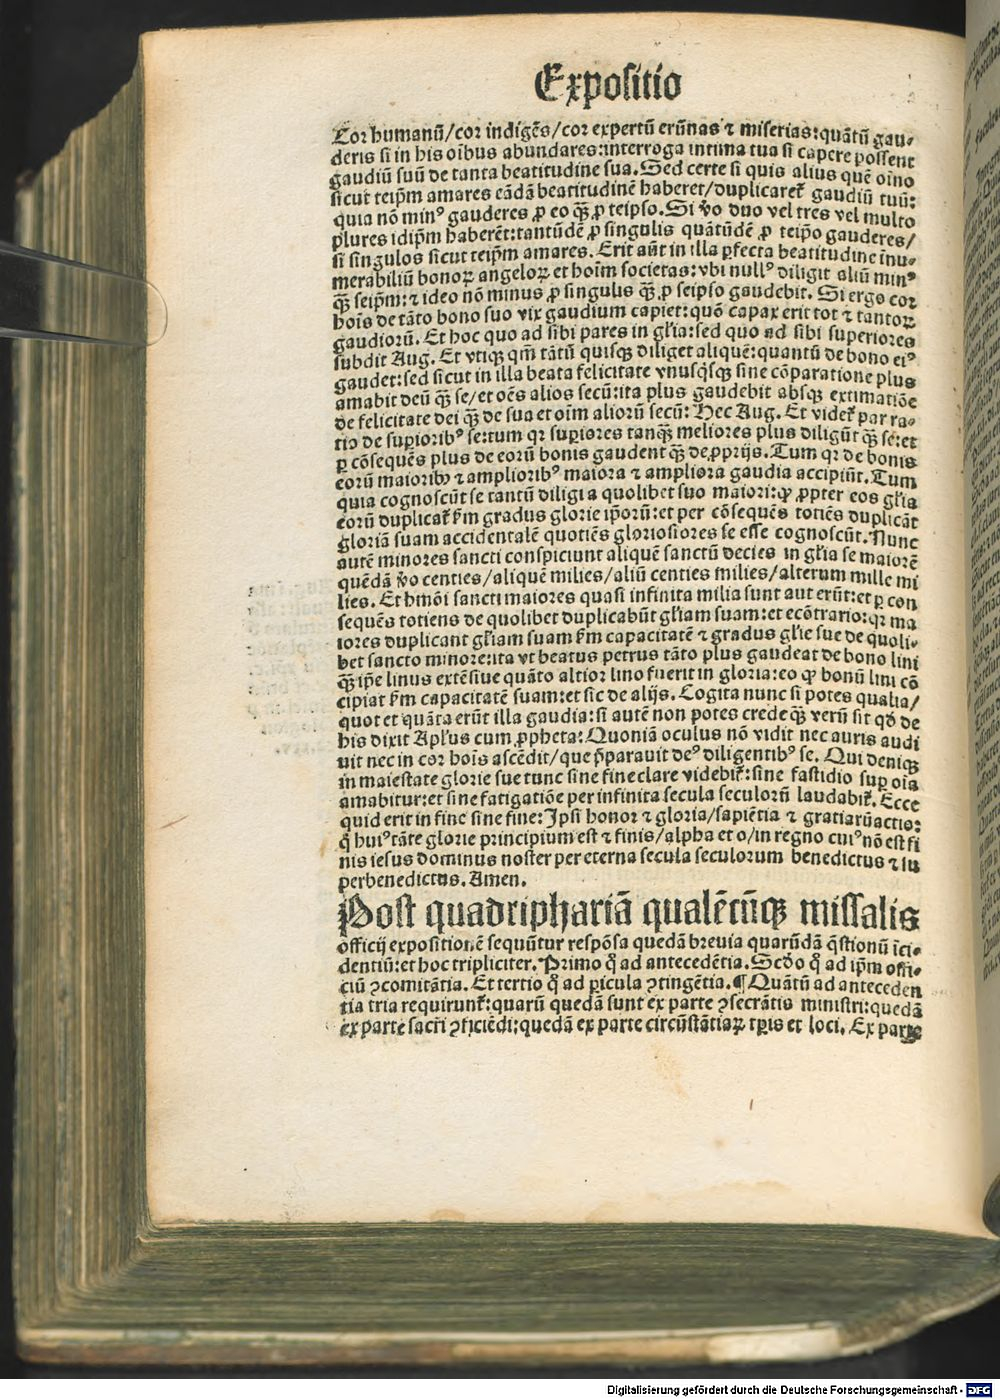 Expositio
Cor humanū/cor indigēs/cor expertū erūnas ⁊ miserias:quātū gau⸗
deris si in his oībus abundares:interroga intima tua si capere possent
gaudiū suū de tanta beatitudine sua. Sed certe si quis alius quē oīno
sicut teipm̄ amares eādā beatitudinē haberet/duplicaret᷒ gaudiū tuū:
quia nō minꝰ gauderes ꝓ eo qꝫ̄ ꝓ teipso. Si v̄o duo vel tres vel multo
plures idip̄m haberēt:tantūdē ꝓ singulis quātūdē ꝓ teip̄o gauderes/
si singulos sicut teipm̄ amares. Erit aūt in illa ꝑfecta beatitudine īnu⸗
merabiliū bonoꝝ angeloꝝ et hoīm societas:vbi nullꝰ diligit aliū minꝰ
qꝫ̄ seipm̄:⁊ ideo nō minus ꝓ singulis qꝫ̄ ꝓ seipso gaudebit. Si ergo cor
hoīs de tāto bono suo vix gaudium capiet:quō capax erit tot ⁊ tantoꝝ
gaudiorū. Et hoc quo ad sibi pares in gl̄ia:sed quo ad sibi superiores
subdit Aug. Et vtiqꝫ qm̄ tātū quisqꝫ diliget aliquē:quantū de bono eiꝰ
gaudet:sed sicut in illa beata felicitate vnusq̄sqꝫ sine cōparatione plus
amabit deū qꝫ̄ se/et oēs alios secū:ita plus gaudebit absqꝫ extimatiōe
de felicitate dei qꝫ̄ de sua et oīm aliorū secū: Hec Aug. Et videt᷒ par ra⸗
tio de supioribꝰ se:tum qꝛ supiores tanqꝫ̄ meliores plus diligūt qꝫ̄ se:et
ꝑ cōsequēs plus de eorū bonis gaudent qꝫ̄ de ꝓprijs. Tum qꝛ de bonis
eorū maioribꝰ ⁊ ampliorib⁹ maiora ⁊ ampliora gaudia accipiūt. Tum
quia cognoscūt se tantū diligi a quolibet suo maiori:qꝙ ꝓpter eos gl̄ia
eorū duplicat᷒ ẜm gradus glorie ip̄orū:et per cōsequēs totiēs duplicāt
gloriā suam accidentalē quotiēs gloriosiores se esse cognoscūt. Nunc
autē minores sancti conspiciunt aliquē sanctū decies in gl̄ia se maiorē
quēdā v̄o centies/aliquē milies/aliū centies milies/alterum mille mi
lies. Et hmōi sancti maiores quasi infinita milia sunt aut erūt:et ꝑ con
sequēs totiens de quolibet duplicabūt gl̄iam suam:et ecōtrario:qꝛ ma
iores duplicant gl̄iam suam ẜm capacitatē ⁊ gradus gl̄ie sue de quoli⸗
bet sancto minore:ita vt beatus petrus tāto plus gaudeat de bono lini
qꝫ̄ ip̄e linus extēsiue quāto altior lino fuerit in gloria:eo ꝙ bonū lini cō
cipiat ẜm capacitatē suam:et sic de alijs. Cogita nunc si potes qualia/
quot et quāta erūt illa gaudia:si autē non potes crede qꝫ̄ verū sit qd̄ de
his dixit Apl̄us cum ꝓpheta: Quoniā oculus nō vidit nec auris audi
uit nec in cor hoīs ascēdit/que p̄parauit deꝰ diligentibꝰ se. Qui deniqꝫ
in maiestate glorie sue tunc sine fine clare videbit᷒:sine fastidio suꝑ oīa
amabitur:et sine fatigatiōe per infinita secula seculorū laudabit᷒. Ecce
quid erit in fine sine fine: Ipsi honor ⁊ gloria/sapiētia ⁊ gratiarūactio:
q̄ huiꝰ tāte glorie principium est ⁊ finis/alpha et o/in regno cuiꝰ nō est fi
nis iesus dominus noster per eterna secula seculorum benedictus ⁊ su
perbenedictus. Amen.
Post quadriphariā qualēcūqꝫ missalis
officij expositionē sequūtur respōsa quedā breuia quarūdā q̄stionū īci⸗
dentiū:et hoc tripliciter. Primo q̄ ad antecedētia. Scd̄o q̄ ad ip̄m offi⸗
ciū ꝯcomitātia. Et tertio q̄ ad ꝑicula ꝯtingētia. ¶ Quātū ad anteceden
tia tria requirunt᷒:quarū quedā sunt ex parte ꝯsecrātis ministri:quedā
ex parte sacr̄i ꝯficiēdi:quedā ex parte circūstātiaꝝ tꝑis et loci. Ex parte
Digitalisierung gefördert durch die Deutsche Forschungsgemeinschaft - DFG